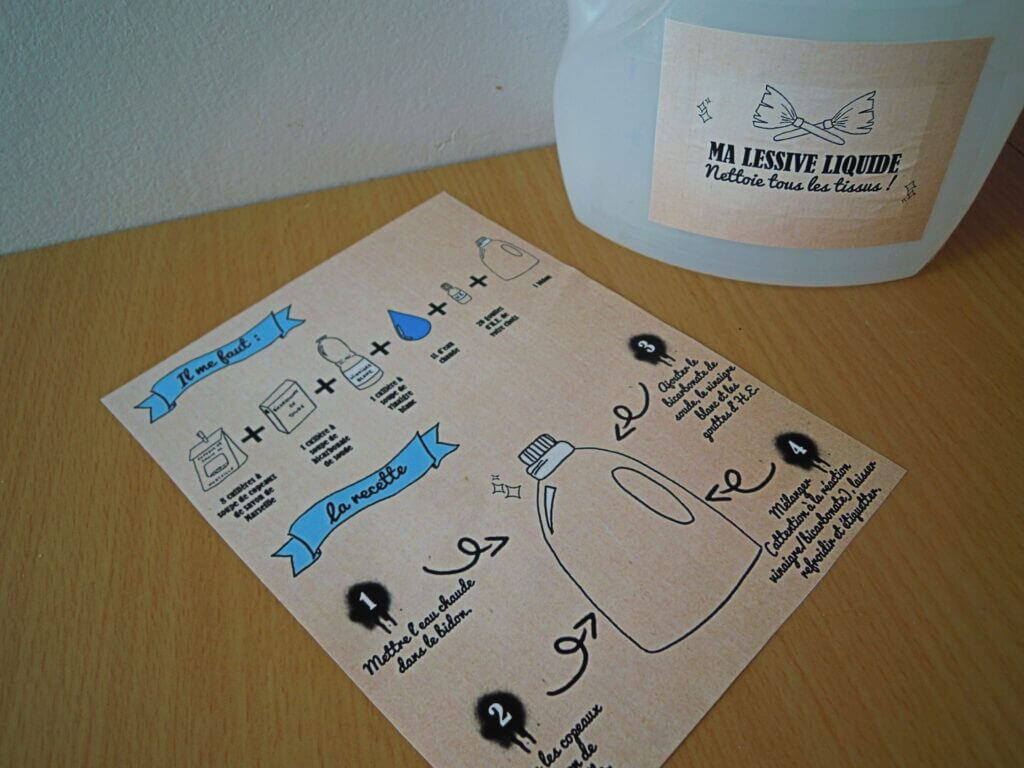 MA LESSIVE LIQUIDE
Nettoie tous les tissus !
Il me faut :
8 cuillères à
soupe de copeaux
de savon de
Marseille
1 cuillère à
soupe de
bicarbonate
de soude
1 cuillère à
soupe de
vinaigre
blanc
1L d'eau
chaude
20 gouttes
d'H.E. de
votre choix
1 bidon
la recette
1
Mettre l'eau chaude
dans le bidon.
2
les copeaux
de
3
Ajouter le
bicarbonate de
soude, le vinaigre
blanc et les
gouttes d'H.E.
4
Mélanger
(attention à la réaction
vinaigre/bicarbonate) laisser
refroidir et étiquetter.